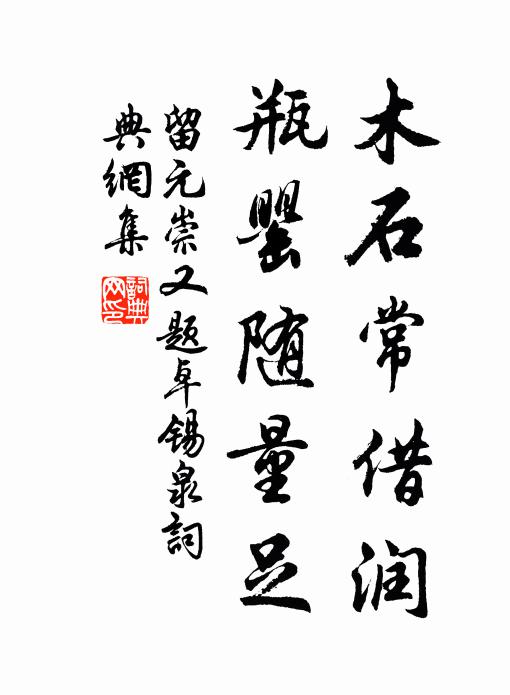 木石常借润
瓶罂随量足
留元崇又题卓锡泉詞
典網集
詞典网印